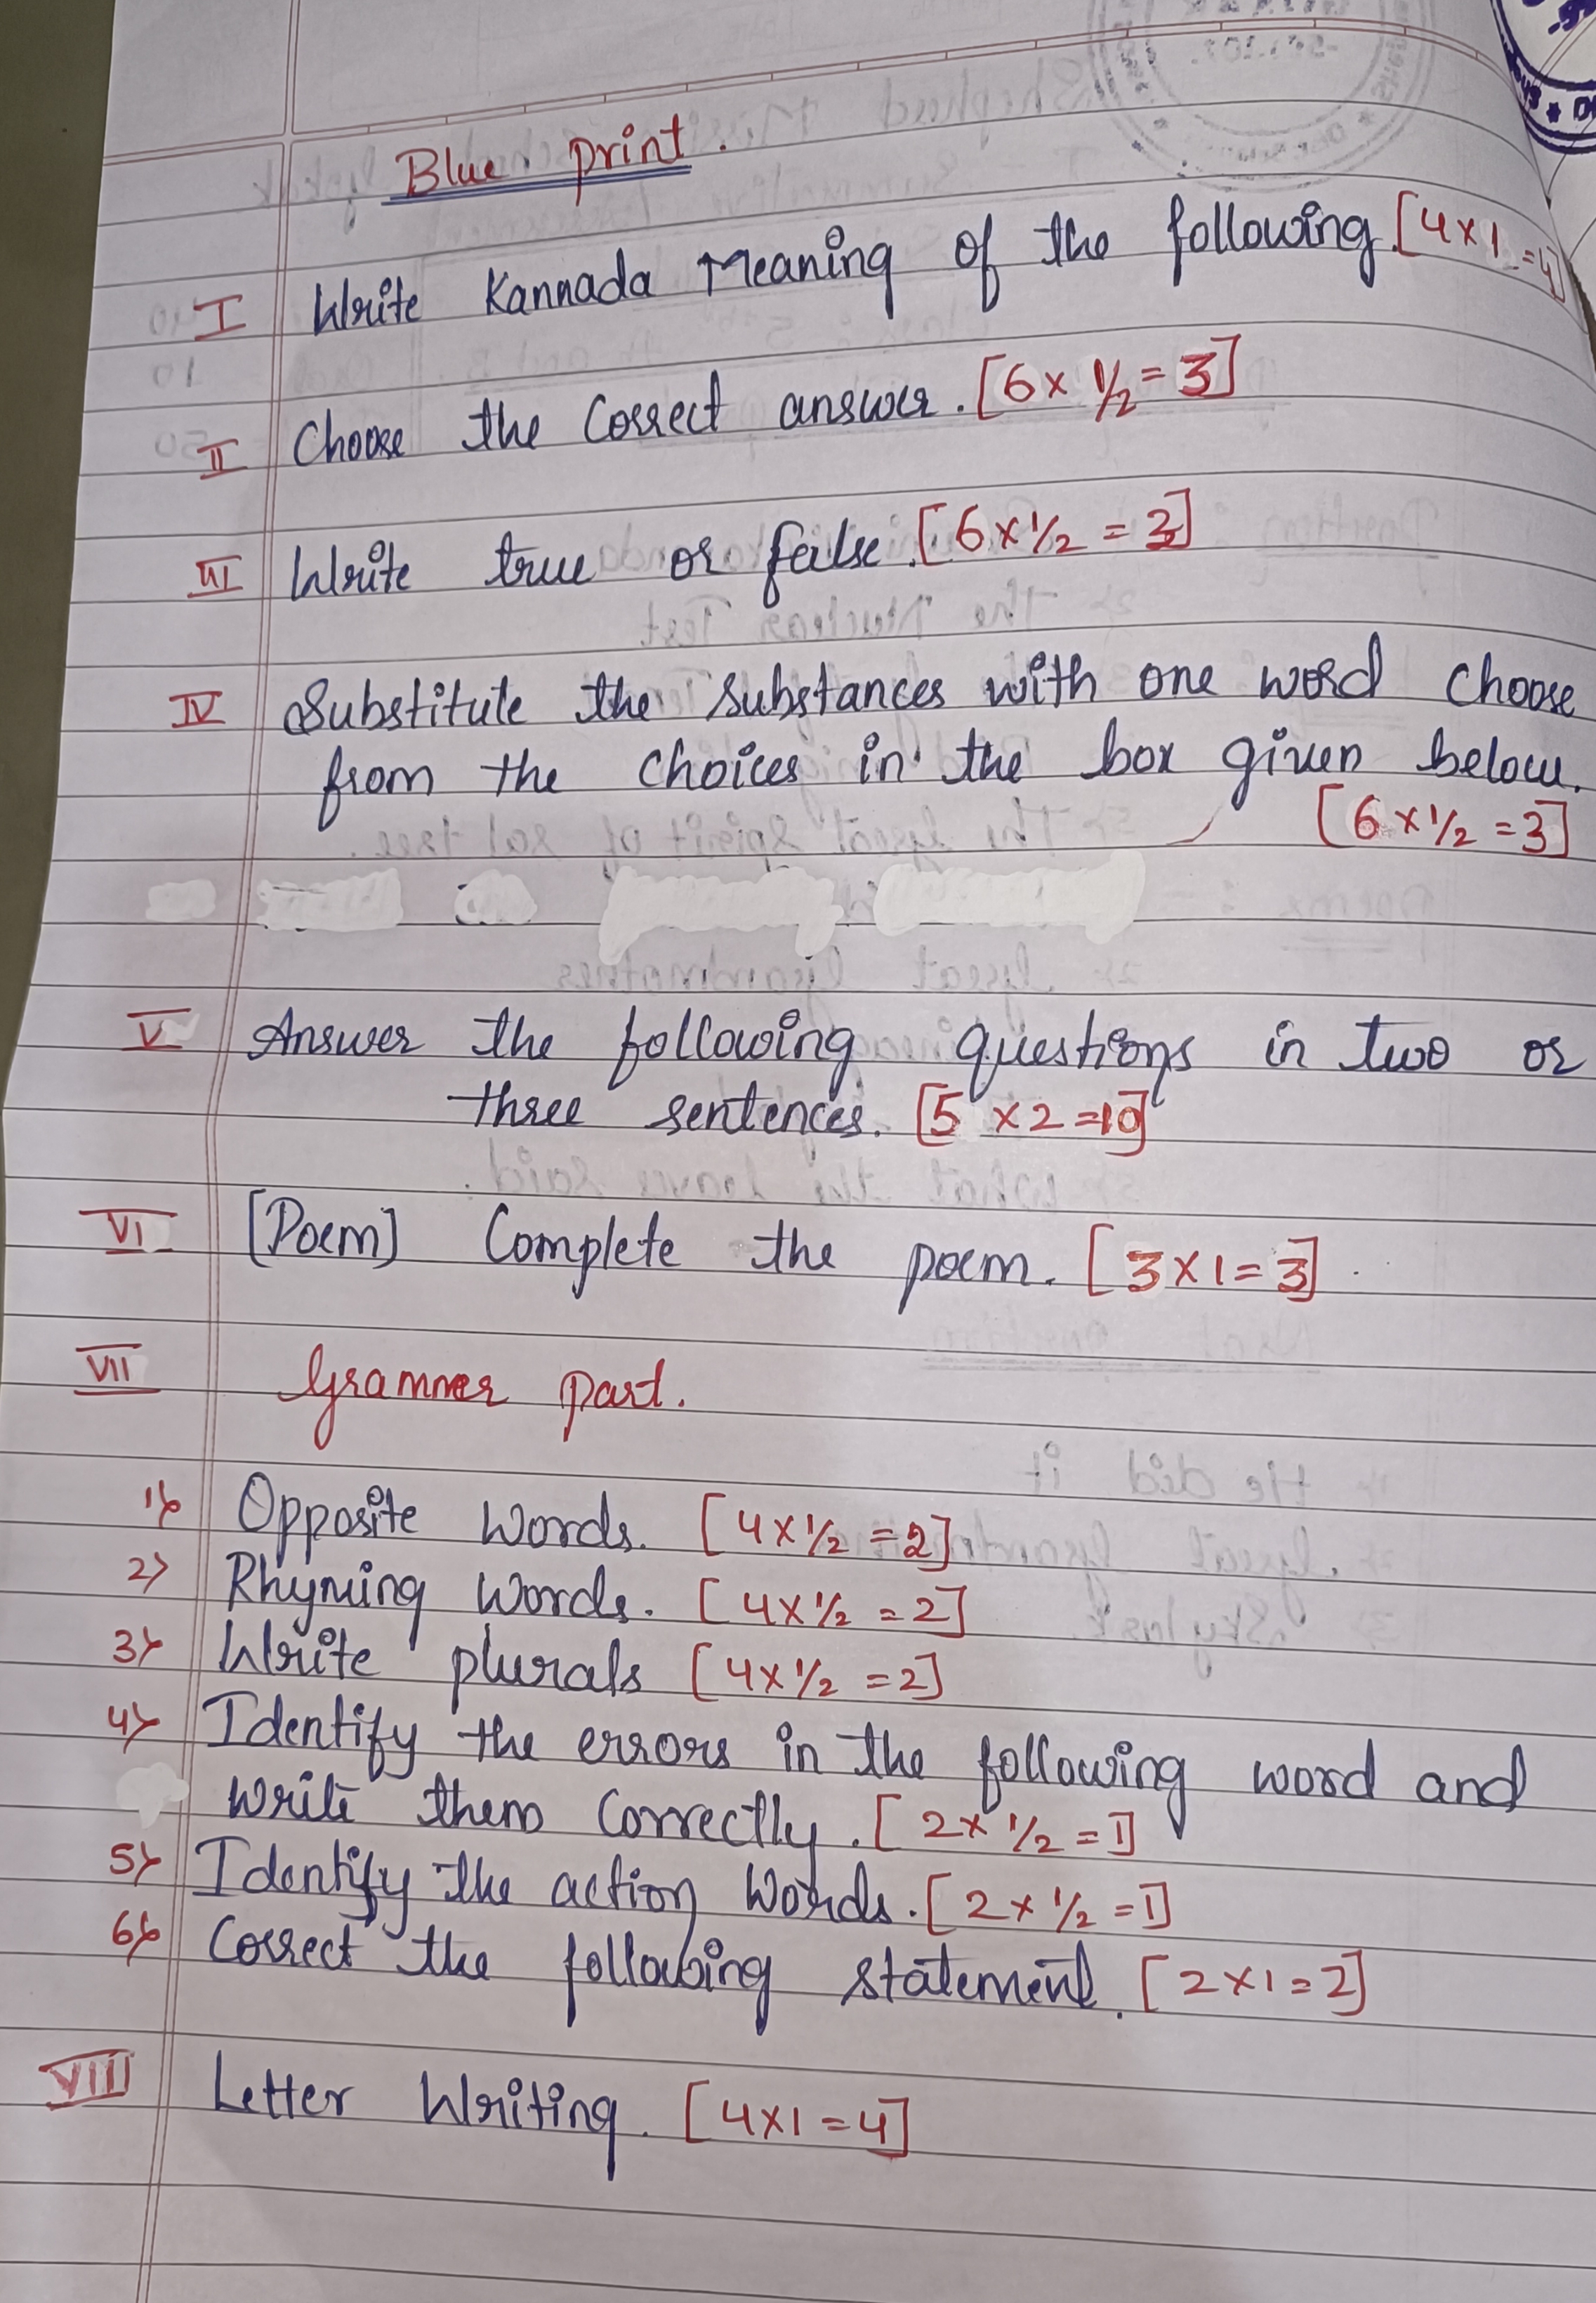 Blue print.
I Write Kannada Meaning of the following. [4×1=4]
II Choose the Correct answer. [6×1/2=3]
III Write true or false. [6×1/2=3]
IV Substitute the substances with one word choose
from the choices in the box given below.
[6×1/2=3]
V Answer the following questions in two or
three sentences. [5×2=10]
VI [Poem] Complete the poem. [3×1=3]
VII Grammer part.
1) Opposite Words. [4×1/2=2]
2) Rhyming Words. [4×1/2=2]
3) Write plurals [4×1/2=2]
4) Identify the errors in the following word and
write them Correctly. [2×1/2=1]
5) Identify the action Words. [2×1/2=1]
6) Correct the following statement. [2×1=2]
VIII Letter Writing. [4×1=4]